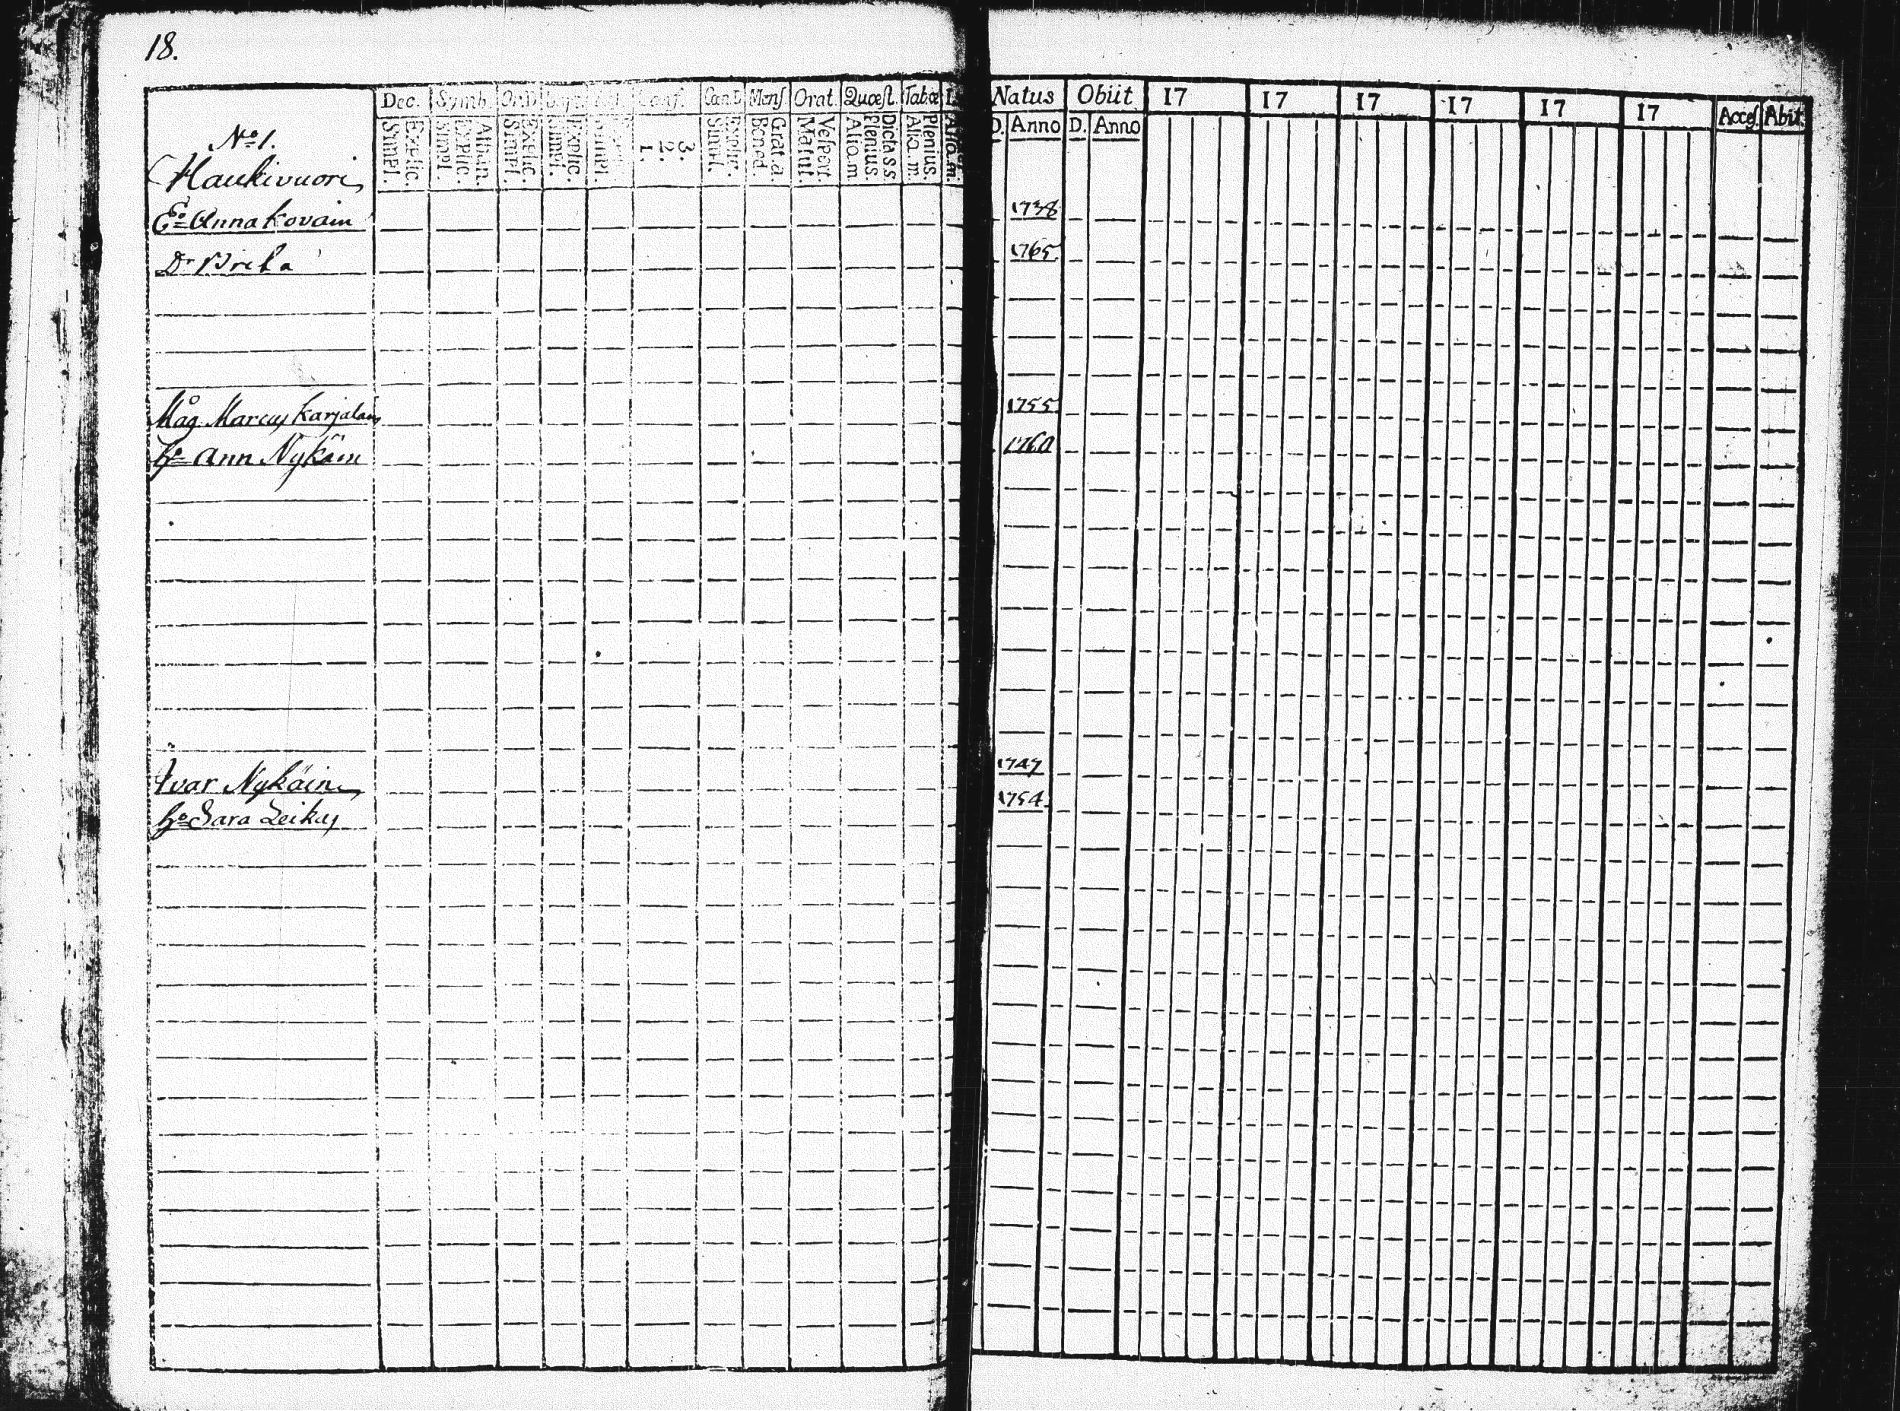 18.
Dec. Symb. Conf. Cant. Mens Orat. Quæst. Tabæ Natus Obiit 17 17 17 17 17 17 Acces. Abit.
Simpl. Explic. Simpl. Explic. Athan. Simpl. Explic. Simpl. Explic. 1. 2. 3. Simpl. Explic. Bened. Grat. a. Matut. Vespert. Aliq. m Plenius. Dicta S S Aliq. m. Plenius. D. Anno D. Anno
No 1.
Haukivuori
Eo Anna kovain 1738
Dr Brita 1765
Måg Marcus Karjalain 1755
ho Ann Nykäin 1760
Ivar Nykäin 1747
ho Sara Leikas 1754